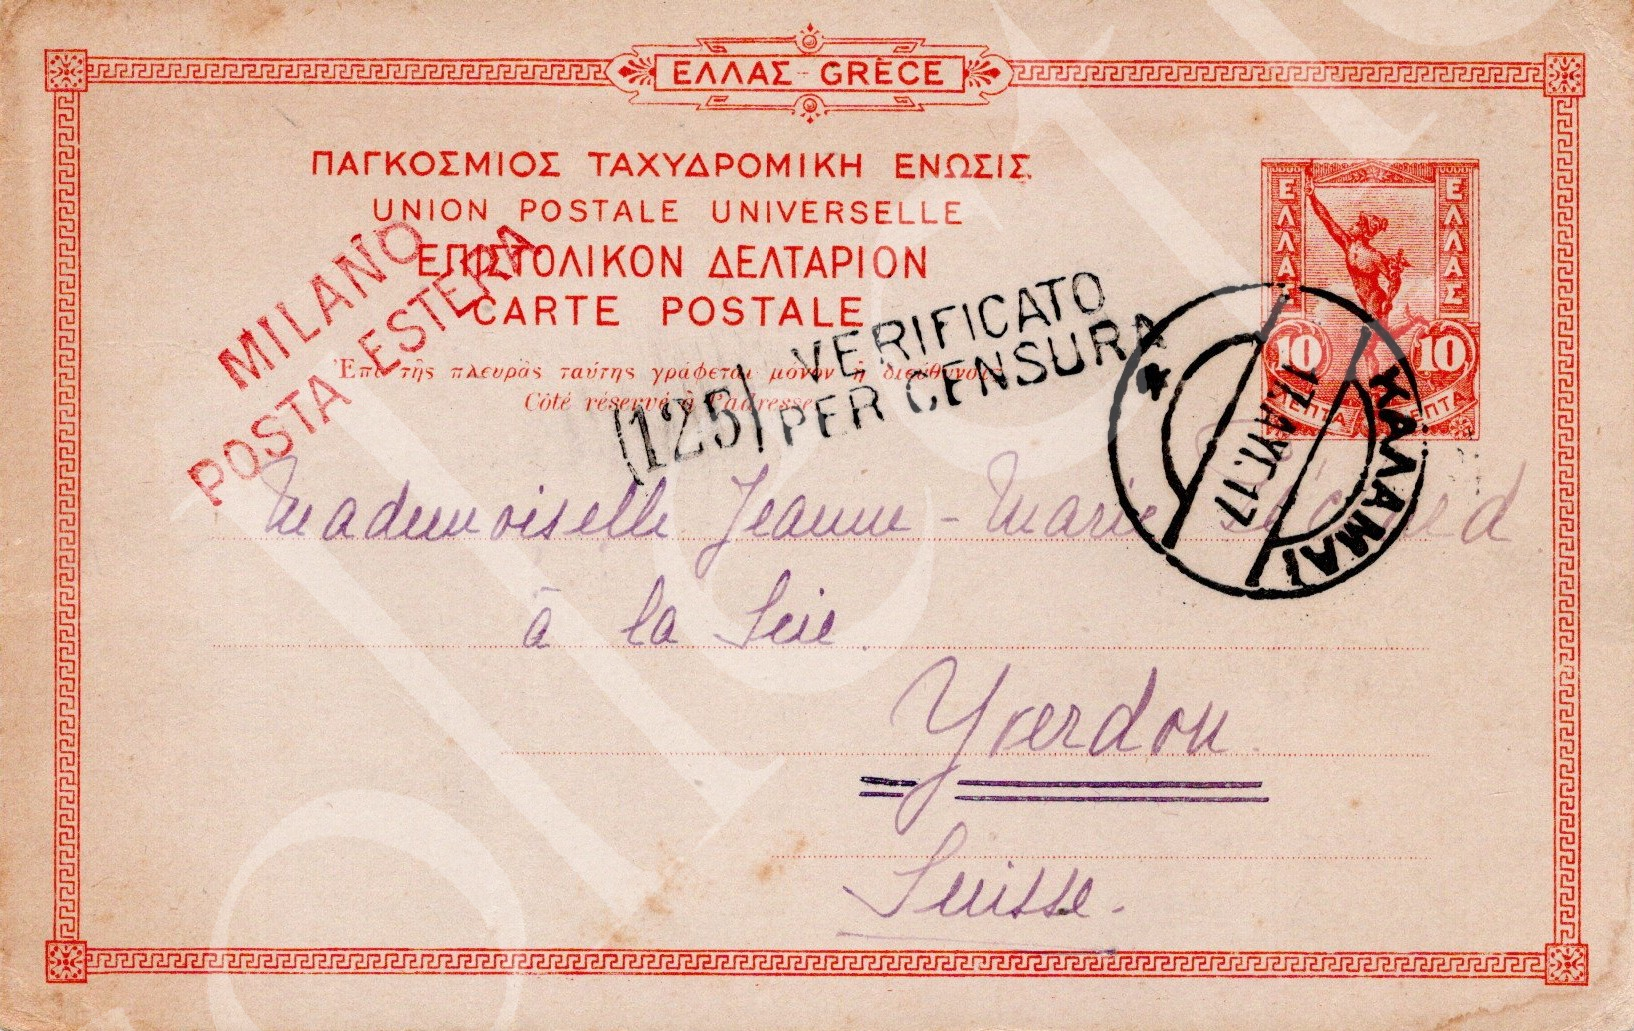 ΕΛΛΑΣ - GRÈCE
ΠΑΓΚΟΣΜΙΟΣ ΤΑΧΥΔΡΟΜΙΚΗ ΕΝΩΣΙΣ.
UNION POSTALE UNIVERSELLE
ΕΠΙΣΤΟΛΙΚΟΝ ΔΕΛΤΑΡΙΟΝ
CARTE POSTALE
Ἐπὶ τῆς πλευρᾶς ταύτης γράφεται μόνον ἡ διεύθυνσις
Côté réservé à l'adresse
MILANO
POSTA ESTERA
(125) VERIFICATO
PER CENSURA
ΕΛΛΑΣ
ΕΛΛΑΣ
10 10
ΛΕΠΤΑ ΛΕΠΤΑ
ΚΑΛΑΜΑΙ
17.ΑΥΓ.17
Mademoiselle Jeanne-Marie
à la
Yverdon
Suisse.